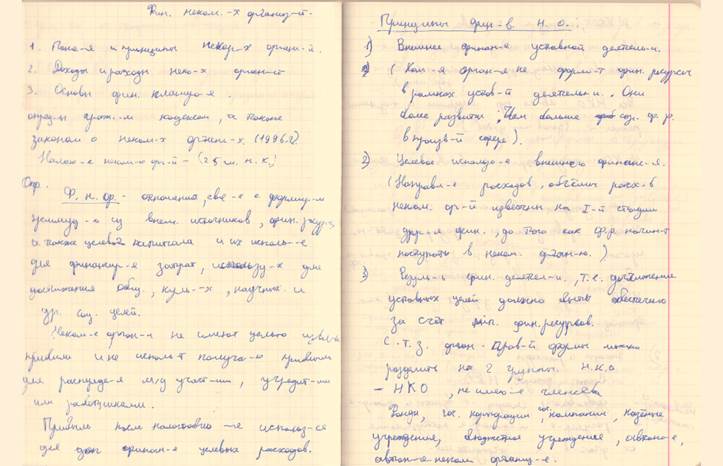 Фин. неком.-х организ-й.
1. Поня-я и принципы некер-х орган-й.
2. Доходы и расходы неко-х орган-ст
3. Основы фин. планиро-я.
опред-ы граж.-м кодексом, а также
законом о неком-х орган-х. (1996г.)
Налого-е неком-о ор-й - (25 гл. н.к.)
Опр.
Ф. н. ор. - отношения, свя-е с формир-м
из внеш. источников, фин. ресурс,
а также целевой капитала и их исполь-е
для финансир-я затрат, использу-х для
достижения общ., куль-х, научных и
др. соц. целей.
Неком-е орган-и не имеют целью извлеч.
прибыли и не исполь-т получа-ю прибыль
для распреде-я м/д участ-ми, учредит-ми
или работниками.
Прибыль после налогообло-я использ-ся
для финансир-я целевых расходов.
Принципы фин-в Н.О.
1) Внешнее финан-я уставной деятель-и.
2) (Ком-я орган-я не форми-т фин. ресурсы
в рамках устав-й деятель-и. Они
более развиты, чем больше соз. ф.р.
в произв-й сфере).
2) Целевое использо-е внешнего финанс-я.
(Направл-е расходов, объёмы расх-в
неком. ор-й известны на I-й стадии
фин., до того как ф.р начинают
поступать в неком. орган-ю.)
3) Резуль-ы фин. деятель-и, т.е. достижение
уставных целей должно быть обеспечено
за счёт мин. фин. ресурсов.
С.т.з. орган-прав-й формы можно
разделить на 2 группы. н.к.о
- НКО, не имею-е членства
Фонды, гос. корпорации, гос. компании, казённые
учреждения, бюджетные учреждения, автоном-е,
автон-е неком. организ-е.